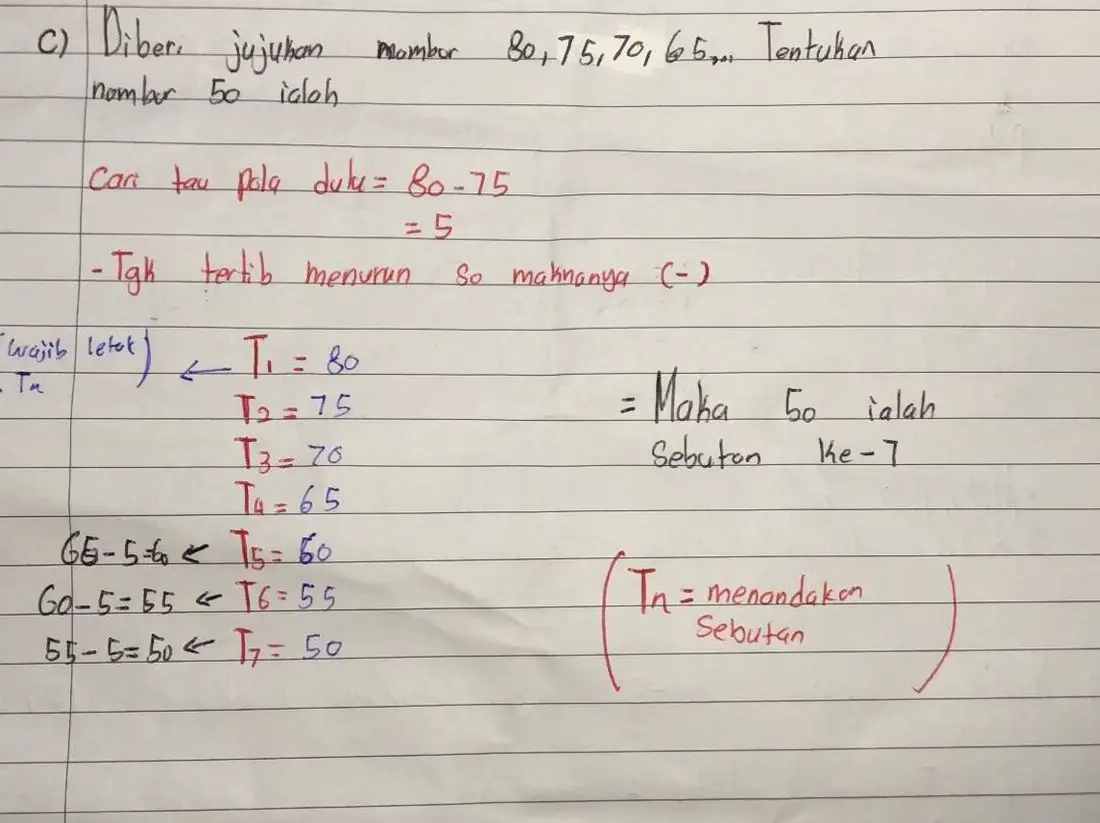 C) Diberi jujukan nombor 80, 75, 70, 65,... Tentukan
nombor 50 ialah
Cari tau pola dulu = 80 - 75
= 5
- Tgk tertib menurun so maknanya (-)
(wajib letak) Tn
← T1 = 80
T2 = 75
T3 = 70
T4 = 65
65 - 5 = 60 ← T5 = 60
60 - 5 = 55 ← T6 = 55
55 - 5 = 50 ← T7 = 50
= Maka 50 ialah
Sebutan ke-7
(Tn = menandakan
Sebutan)